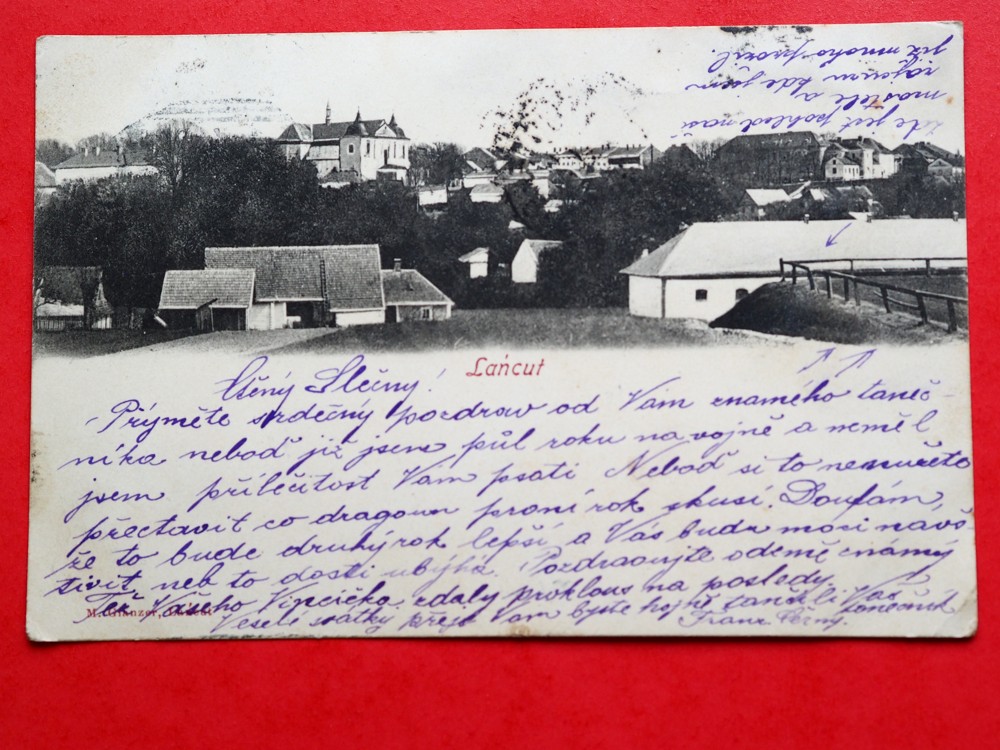 zde jest pohled naší
mastele a
rajčum kde jsem
již mnoho prožil.
Łańcut
Ctěný Slečny!
Přijměte srdečný pozdrav od Vám známého taneč-
níka neboď již jsem půl roku na vojně a neměl
jsem příležitost Vám psáti Neboď si to nemužeto
přectavit co dragoun první rok skusí. Doufám,
že to bude druhý rok lepší a Vás budu moci navš-
tívit neb to dosti ubýhá. Pozdravujte odemě známý
Též Vašeho zdaly na posledy.
Veselé svátky přeji Vám byste hojně tančili Váš
tanečník
Franz Černý.